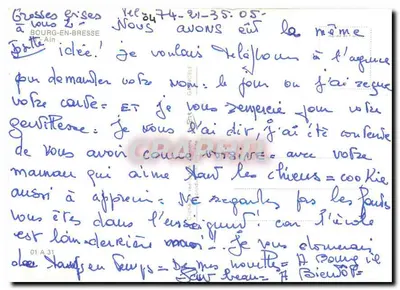 Grosses bises à vous 2.
Tel 04 74-21-35.05-
BOURG-EN-BRESSE
Ain
Nous avons eût la même
idée! je voulais téléphoner à l'agence
pour demander votre nom: le jour ou j'ai reçue
votre carte= ET je vous remercie pour votre
gentillesse: je vous l'ai dit, j'ai été contente
de vous avoir comme voisine= avec votre
maman qui aime tant les chiens= cookie
aussi à appris= Ne regardez pas les fautes
vous êtes dans l'enseignement! car l'école
est loin derrière moi!... je vous donnerai
de temps en temps= de mes nouvelles= A Bourg il
fait beau= A Bientôt=
01 A 31